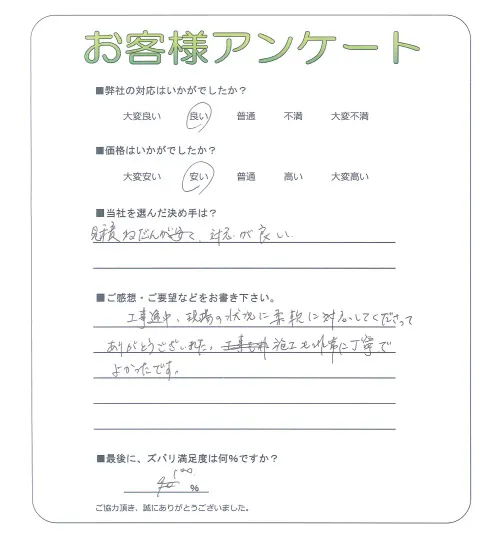 お客様アンケート
■弊社の対応はいかがでしたか?
大変良い 良い 普通 不満 大変不満
■価格はいかがでしたか?
大変安い 安い 普通 高い 大変高い
■当社を選んだ決め手は?
見積ねだんが安くて、対応が良い
■ご感想・ご要望などをお書き下さい。
工事途中、現場の状況に柔軟に対応してくださって
ありがとうございました。施工も非常に丁寧で
よかったです。
■最後に、ズバリ満足度は何%ですか?
100
%
ご協力頂き、誠にありがとうございました。